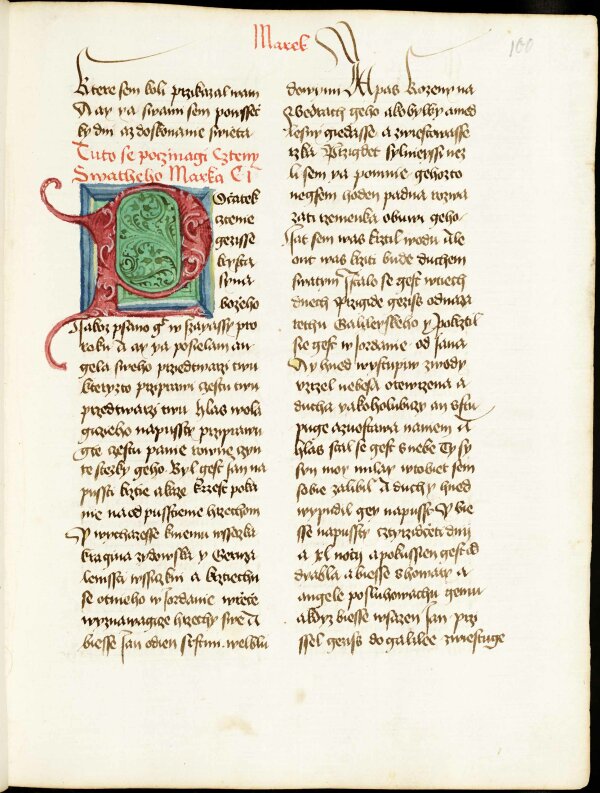 Marek
100
ktere sem koli przikazal wam
A ay ya swami sem powssec
ky dni az doskonanie swieta
Tuto se poczinagi Cztenij
Swatheho Marka C I
Poczatek
cztenie
gezisse
krysta
syna
bozeho
Jakoz psano gest w Izayassy pro
roku A ay ya posielam an
gela sweho przedtwarzi twu
kteryzto prziprawi czestu twu
przedtwarzi twu hlas wola
gicieho napussti prziprawu
gte czestu panie rowne czyn
te stezky geho Byl gest Jan na
pussti krzte a kaze krzest poka
nie na od pusstienie hrzechom
Y wychazesse kniemu wssczka
kragina zydowska y Geruza
lemssti wssiczkni a krztiechu
se otnieho w Jordanie rziece
wyznawagice hrzechy swe A
biesse Jan odien srstmi welblu
dowymi A pas kozeny na
Zbedrach geho a kobylky a med
lesny giedasse a zwiestowasse
rzka Przigdet sylnieyssi nez
li sem ya pomnie gehozto
negsem hoden padna rozwa
zati rzemenka obuwi geho
Jat sem was krztil wodu Ale
ont was krzti bude duchem
swatym Jstalo se gest wtiech
dnech Przigide geziss odnaza
retha Galileyskeho y pokrztil
sie gest w Jordanie od Jana
Ay hned wystupiw zwody
vzrzel nebesa otewrzena a
ducha yakoholubiczy an sstu
puge a zuostawa namem A
hlas stal se gest s nebe Ty sy
syn moy milay wtobiet sem
sobie zalibil A duch y hned
wypudil gey napusst Y bie
sse napussti cztyrzidceti dni
a xl noczi a pokussien gest od
dyabla a biesse s howady a
angele posluhowachu gemu
a kdyz biesse wsazen Jan Przi
ssel geziss do galilee zwiestuge